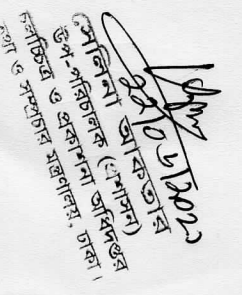 ২২/০৮/২০২২
সেলিনা আকতার
উপ-পরিচালক (প্রশাসন)
চলচ্চিত্র ও প্রকাশনা অধিদপ্তর
তথ্য ও সম্প্রচার মন্ত্রণালয়, ঢাকা।